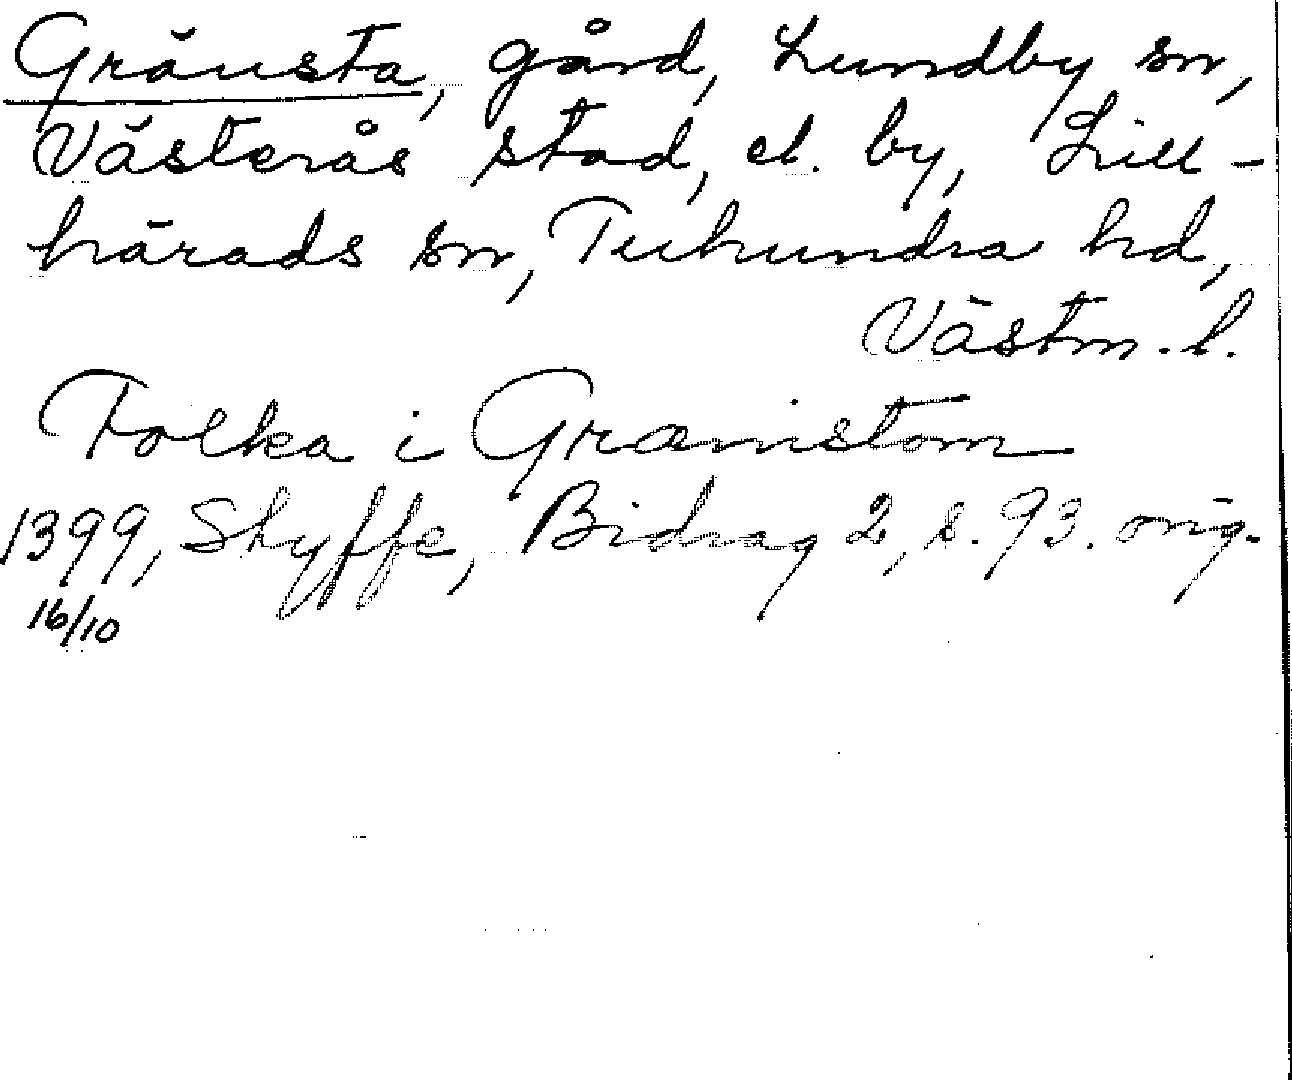 Gränsta, gård, Lundby sn,
Västerås stad, el. by, Lill-
härads sn, Tuhundra hd,
Västm. l.
Folka i Grænistom
1399, Styffe, Bidrag 2, s. 93. orig.
16/10